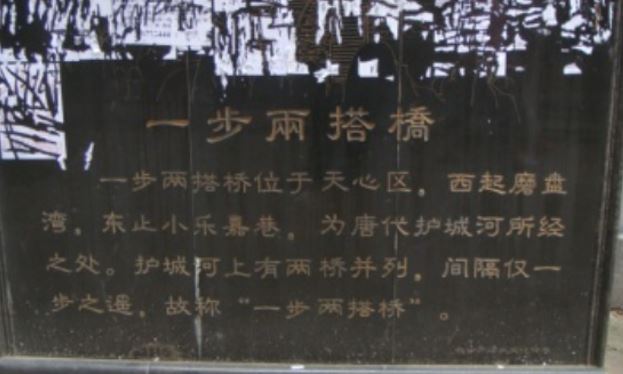 一步兩搭橋
一步两搭桥位于天心区，西起磨盘
湾，东止小乐嘉巷，为唐代护城河所经
之处。护城河上有两桥并列，间隔仅一
步之遥，故称“一步两搭桥”。